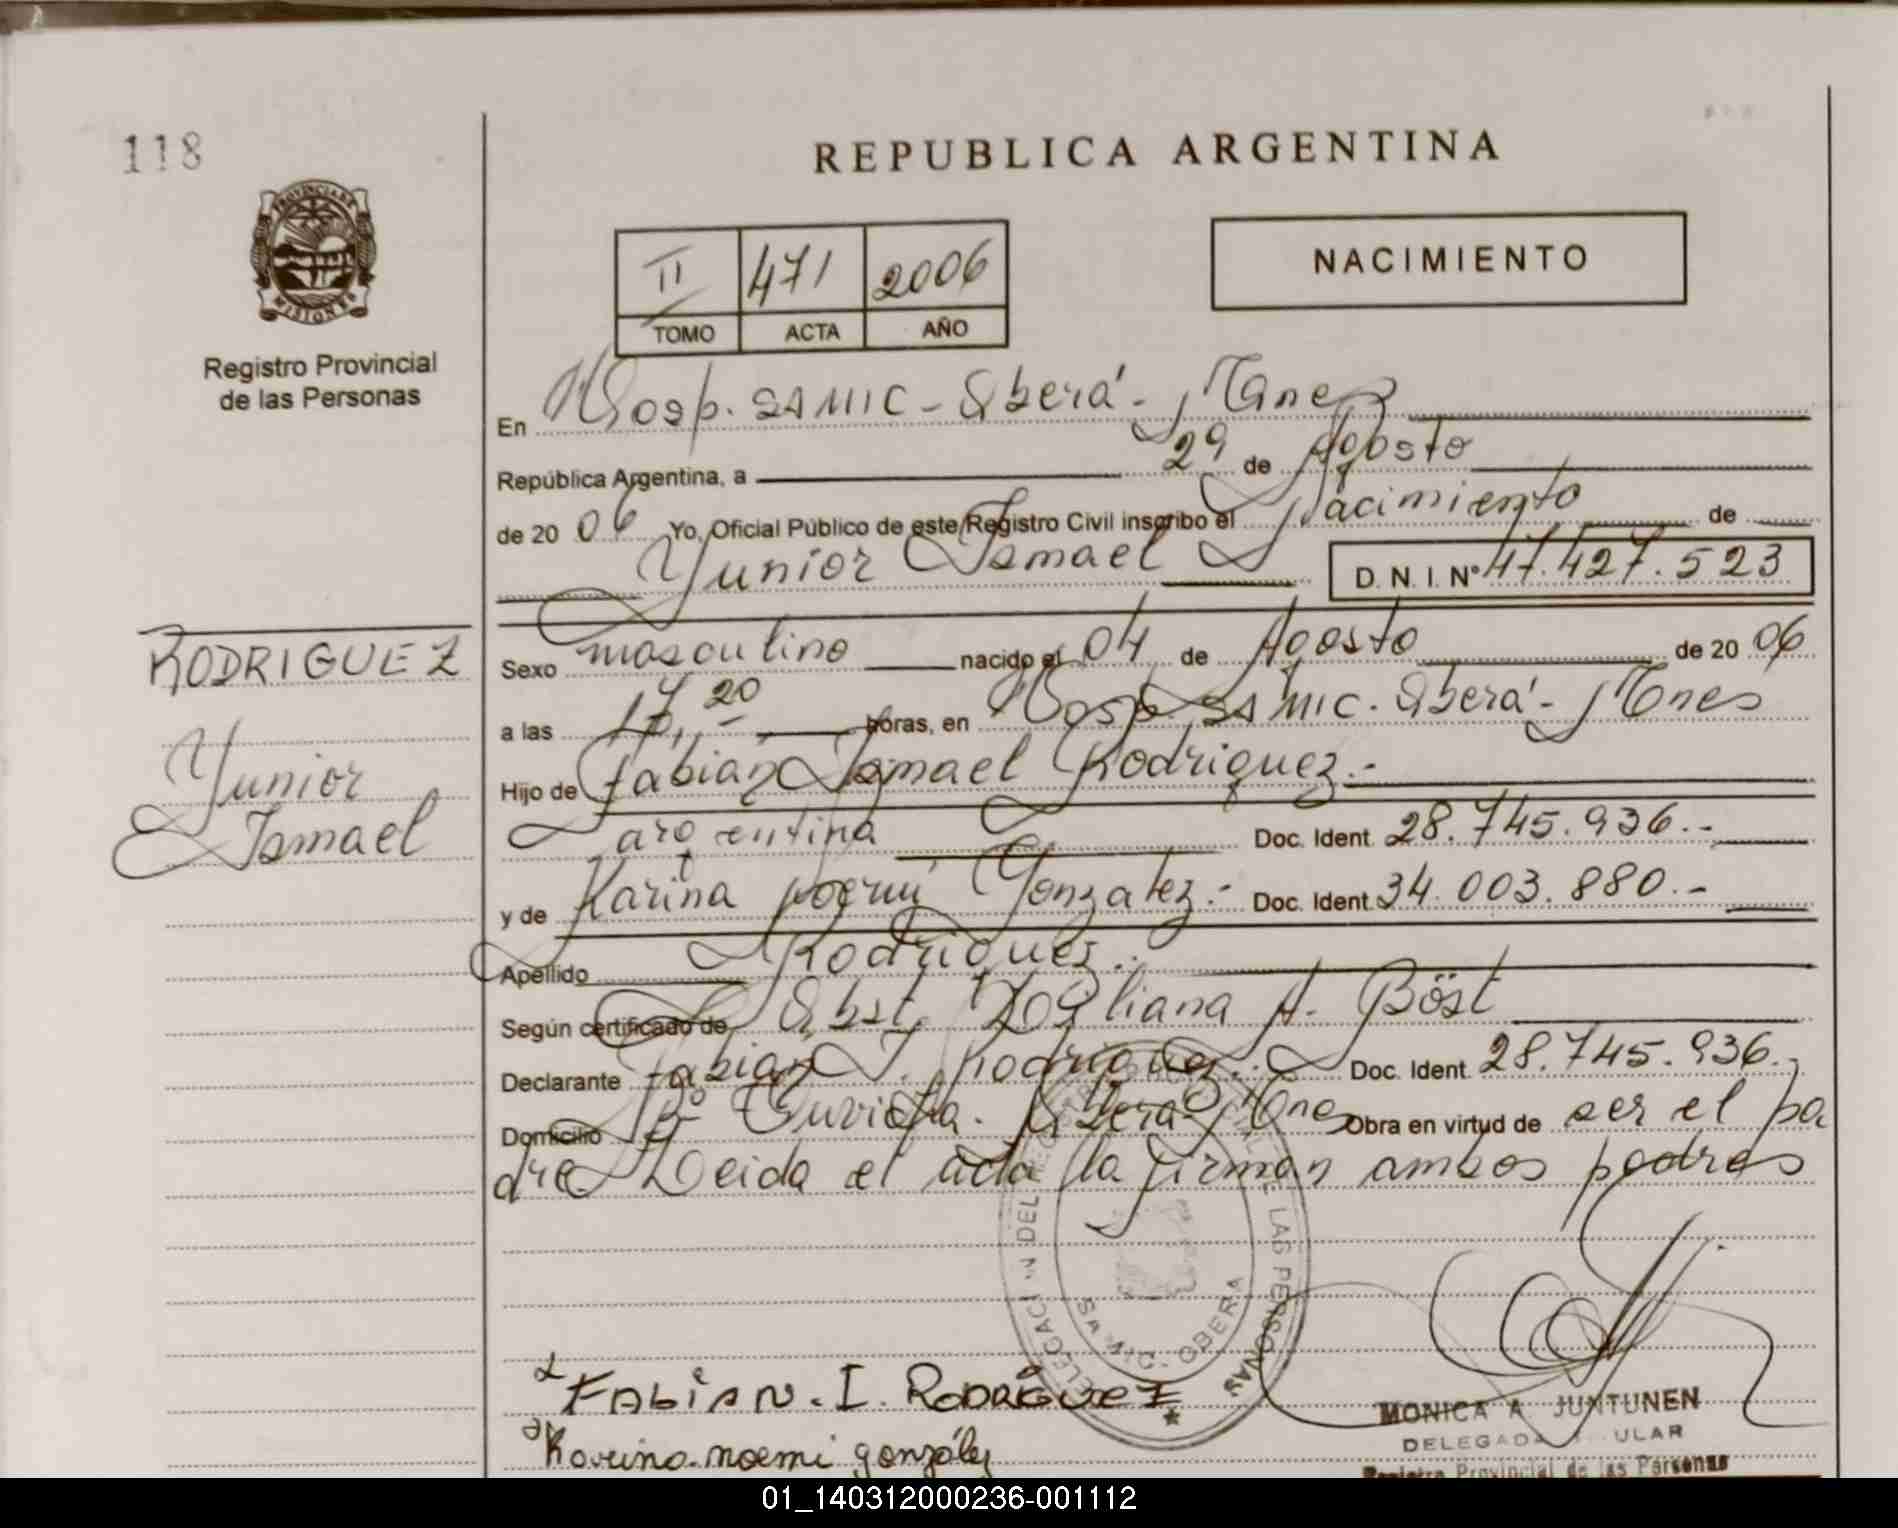 118
REPUBLICA ARGENTINA
PROVINCIA DE
MISIONES
Registro Provincial
de las Personas
II 471 2006
TOMO ACTA AÑO
NACIMIENTO
En Hosp. SAMIC - Oberá - Mnes
República Argentina, a 29 de Agosto
de 20 06 Yo, Oficial Público de este Registro Civil inscribo el Nacimiento de
Yunior Ismael D. N. I. Nº 47.427.523
RODRIGUEZ
Yunior
Ismael
Sexo masculino nacido el 04 de Agosto de 20 06
a las 17, 20 horas, en Hosp. SAMIC. Oberá - Mnes
Hijo de Fabián Ismael Rodriguez.-
argentina Doc. Ident. 28.745.936.-
y de Karina Noemí Gonzalez.- Doc. Ident. 34.003.880.-
Apellido Rodriguez.-
Según certificado de Obst. Liliana A. Böst
Declarante Fabián I. Rodriguez.- Doc. Ident. 28.745.936.-
Domicilio Bº Oberá - Mnes Obra en virtud de ser el pa
dre Leida el acta la firman ambos padres
DELEGACIÓN DEL REGISTRO PROVINCIAL DE LAS PERSONAS
SAMIC - OBERA
FABIAN. I. RODRIGUEZ
Karina noemi gonzález
MONICA A JUNTUNEN
DELEGADA TITULAR
Registro Provincial de las Personas
01_140312000236-001112